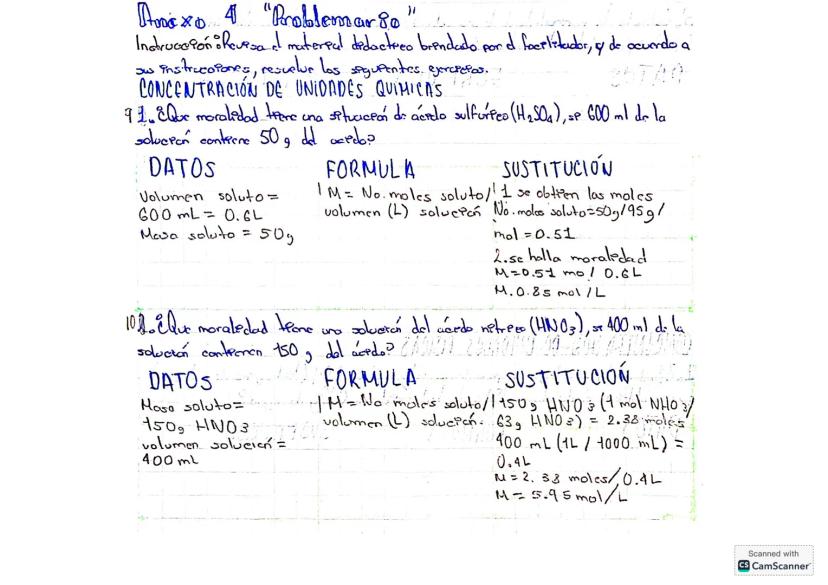 Anexo 4 "Problemario"
Instrucción: Revisa el material didactico brindado por el facilitador, y de acuerdo a
sus instrucciones, resuelve los siguientes ejercicios.
CONCENTRACIÓN DE UNIDADES QUIMICAS
9 1. ¿Que moralidad tiene una situación de ácido sulfúrico (H2SO4), se 600 ml de la
solución contiene 50 g del acido?
DATOS FORMULA SUSTITUCIÓN
Volumen soluto =
600 mL = 0.6L
Masa soluto = 50g
M = No. moles soluto/
volumen (L) solución
1 se obtien las moles
No. moles soluto=50g/95g/
mol = 0.51
2. se halla moralidad
M = 0.51 mo / 0.6L
M. 0.85 mol / L
10 ¿Que moralidad tiene una solución del ácido nítrico (HNO3), se 400 ml de la
solución contienen 150 g del ácido?
DATOS FORMULA SUSTITUCIÓN
Masa soluto =
150g HNO3
volumen solución =
400 mL
M = No moles soluto/
volumen (L) solución.
150g HNO3 (1 mol NHO3/
63g HNO3) = 2.38 moles
400 mL (1L / 1000 mL) =
0.4L
M = 2.38 moles/0.4L
M = 5.95 mol/L
Scanned with
CS CamScanner